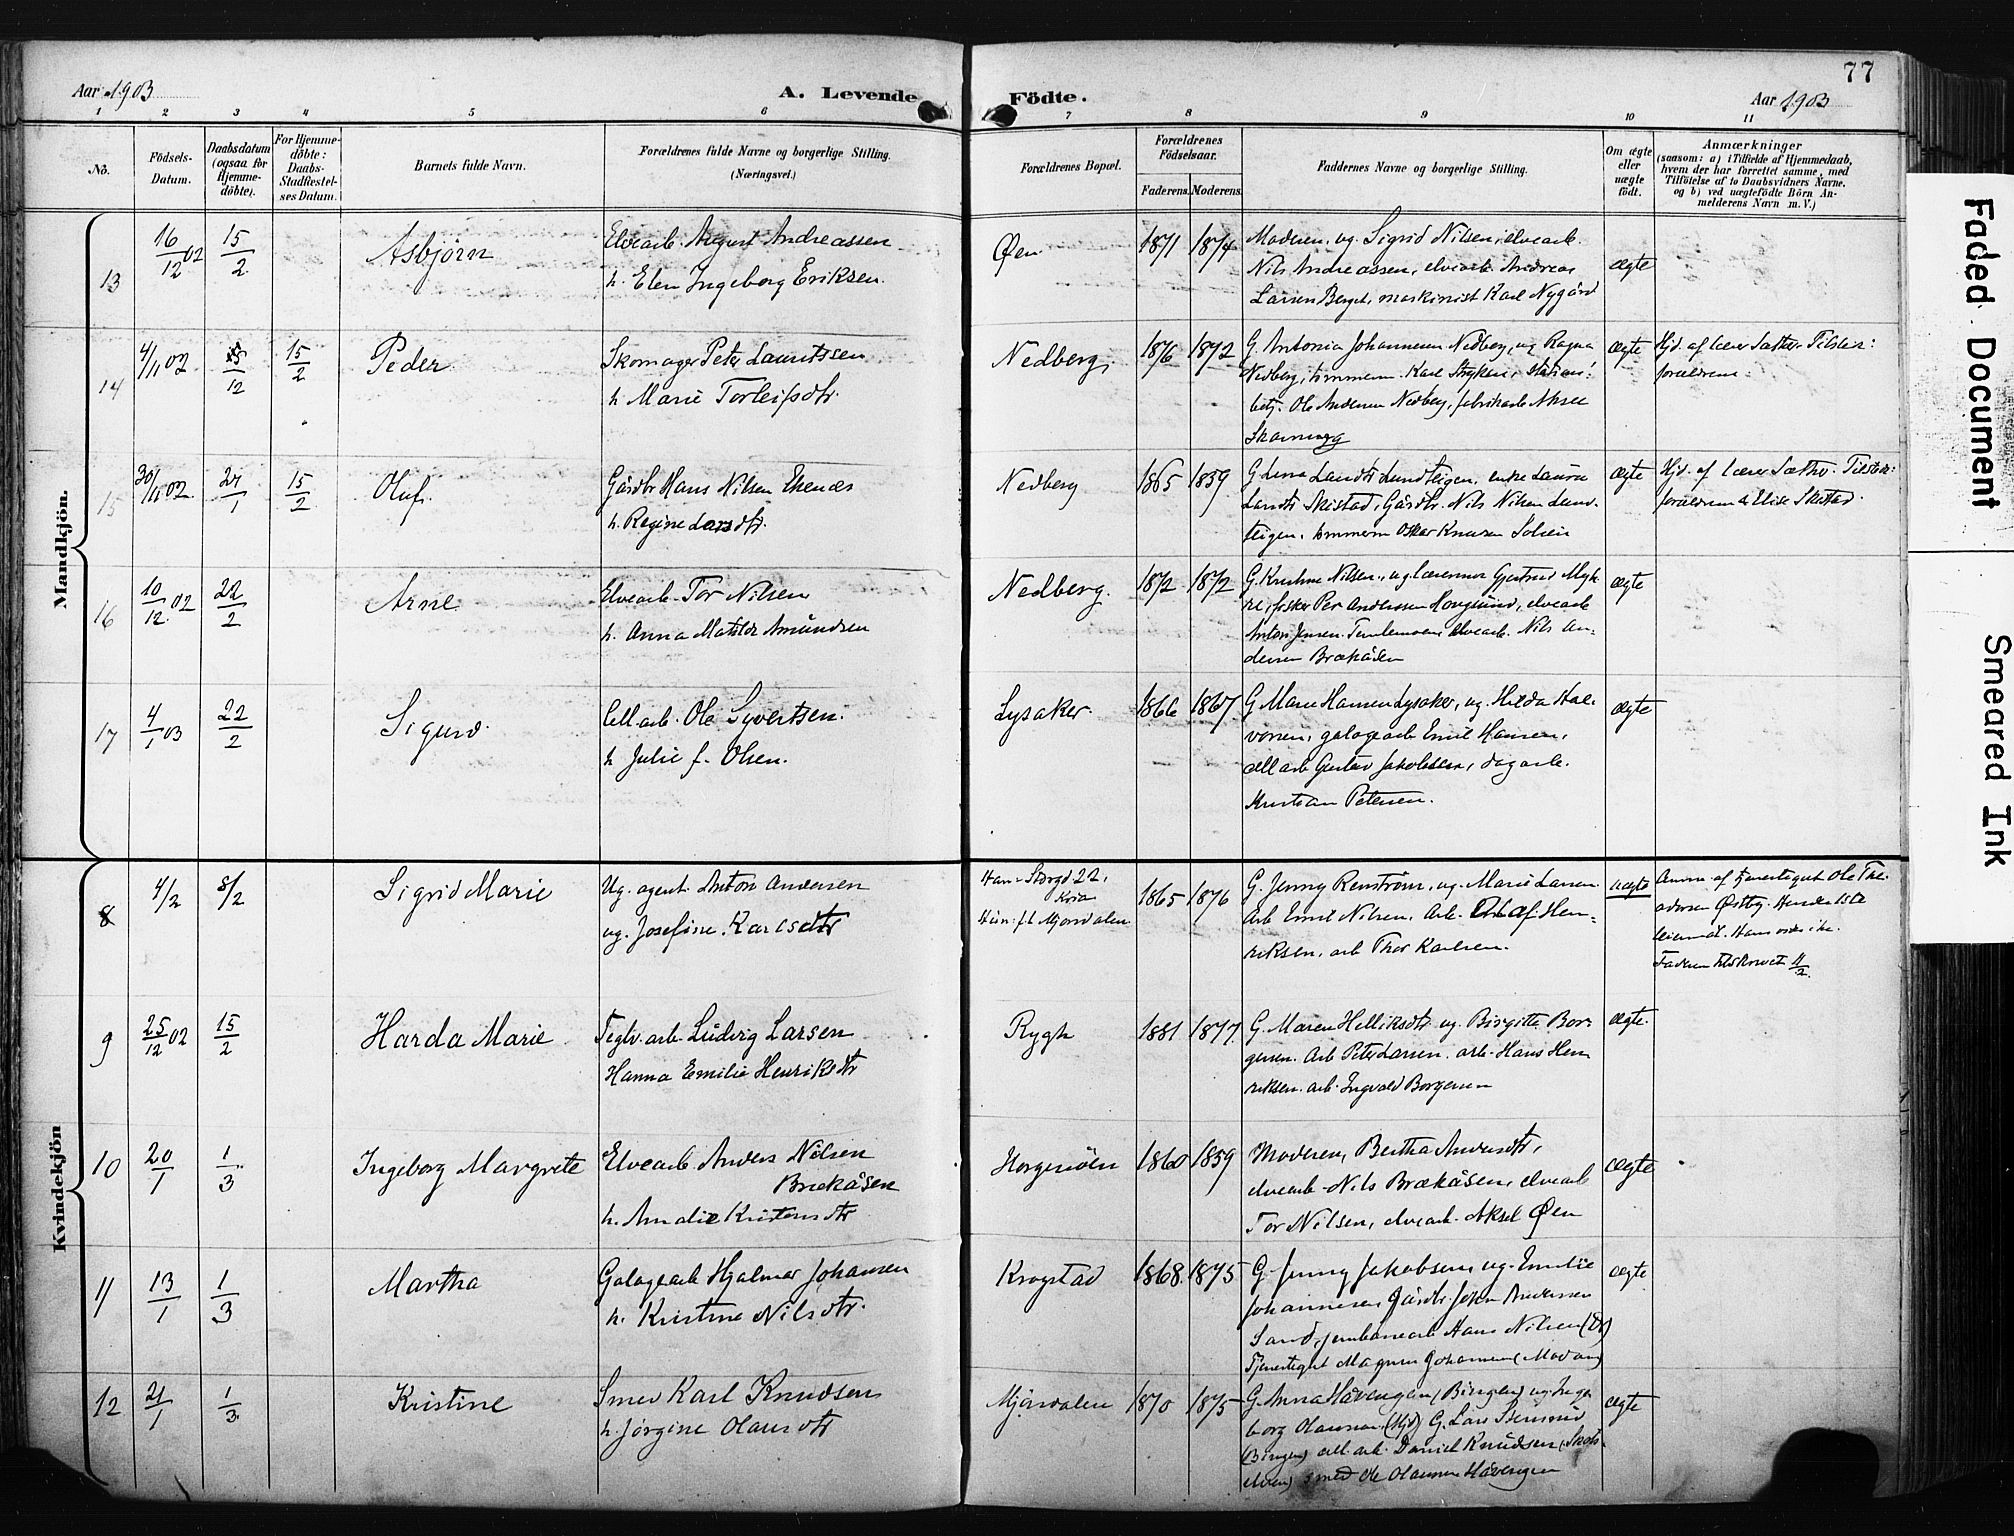 77
Aar 1903
A. Levende Födte.
Aar 1903
1 2 3 4 5 6 7 8 9 10 11
No.
Födsels-
Datum.
Daabsdatum
(ogsaa for
Hjemme-
döbte).
For Hjemme-
döbte:
Daabs-
Stadfæstel-
ses Datum.
Barnets fulde Navn.
Forældrenes fulde Navne og borgerlige Stilling.
(Næringsvei.)
Forældrenes Bopæl.
Forældrenes
Födselsaar.
Faderens. Moderens.
Faddernes Navne og borgerlige Stilling.
Om ægte
eller
uægte
födt.
Anmærkninger
(saasom: a) i Tilfælde af Hjemmedaab,
hvem der har forrettet samme, med
Tilföielse af to Daabsvidners Navne,
og b) ved uægtefödte Börn An-
melderens Navn m. V.)
Mandkjön.
13
16/12 02
15/2
Asbjørn
Elvearb. August Andreassen
h. Elen Ingeborg Eriksen.
Øen
1871 1874
Moderen, ug. Sigrid Nilsen, elvearb.
Nils Andreassen, elvearb. Andreas
Larsen Berget, maskinist Karl Nygård
ægte
14
4/11 02
/12
15/2
Peder
Skomager Peter Lauritssen
h Marie Torleifsdtr.
Nedberg,
1876 1872
G. Antonia Johannesen Nedberg, ug Ragna
Nedberg, tømmerm. Karl Stryken, stations-
betj. Ole Andersen Nedberg, fabrikarb Aksel
ægte
Hjd. af lærer Sæther Tilsted:
forældrene
15
30/11 02
27/1
15/2
Oluf.
Gårdbr Hans Nilsen Ekenæs
h. Regine Larsdtr.
Nedberg
1865 1859
G Lina Larsdtr Lundteigen, enke Laura
Larsdtr Skistad, Gårdbr. Nils Nilsen Lund-
teigen, tømmerm Oskar Knudsen Solien
ægte
Hjd. af lærer Sæther. Tilsted:
forældrene & Elise Skistad.
16
10/12 02
22/2
Arne
Elvearb. Tor Nilsen
h. Anna Matilde Amundsen
Nedberg.
1872 1872
G. Kristine Nilsen, ug lærerinne Gjertrud Myh-
re, fisker Per Anderssen Horgsund, elvearb
Anton Jensen Temlemoen, elvearb. Nils An-
dersen Brækåsen
ægte
17
4/1 03
22/2
Sigurd.
Cell.arb. Ole Syvertsen.
h Julie f. Olsen.
Lysaker.
1866 1867
G Marie Hansen Lysaker, ug. Hilda Hal-
vorsen, galogearb Emil Hansen,
cell arb Gustav Jakobsen, dagarb.
Kristian Petersen.
ægte
Kvindekjön
8
4/2
8/2
Sigrid Marie
Ug. agent Anton Andersen
ug. Josefine Karlsdtr
Han: Storgd 22,
Kria
Hun: f.t. Mjøndalen
1865 1876
G. Jenny Renstrøm, ug. Marie Larsen
Arb Emil Nilsen. Arb. Olaf Hen-
riksen, arb Thor Karlsen.
uægte
Anm. af tjenestegut Ole The-
odorsen Østby. Hendes 1ste
leiermål.
Faderen tilskrevet 11/2
9
25/12 02
15/2
Harda Marie
Teglv.arb. Ludvig Larsen
Hanna Emilie Henriksdtr
Rygh
1881 1877
G. Maren Helliksdtr ug. Birgitte Bor-
gersen. Arb Peter Larsen. arb. Hans Hen
riksen. arb. Ingvald Borgersen
ægte.
10
20/1
1/3
Ingeborg Margrete
Elvearb Anders Nilsen
Brækåsen
h. Amalie Kristensdtr
Horgenøen
1860 1859
Moderen, Bertha Andersdtr,
elvearb Nils Brækåsen, elvearb
Tor Nilsen, elvearb. Aksel Øen
ægte
11
13/1
1/3
Martha
Galogearb Hjalmar Johansen
h. Kristine Nilsdtr.
Krogstad
1868. 1875
G. Jenny Jakobsen, ug. Emilie
Johannesen Gårdbr. John Andersen
Sand, jernbanearb Hans Nilsen
Tjenestegut Magnus Johansen (Modum)
ægte
12
21/1
1/3
Kristine
Smed Karl Knudsen
h. Jørgine Olausdtr
Mjøndalen
1870 1875
G. Anna Håvengen (Bingen) ug. Inge-
borg Olaussen (Mjd) G. Lars
(Bingen) cell. arb. Daniel Knudsen (Skots-
elven) smed Ole Olaussen Håvengen
ægte
Faded Document
Smeared Ink